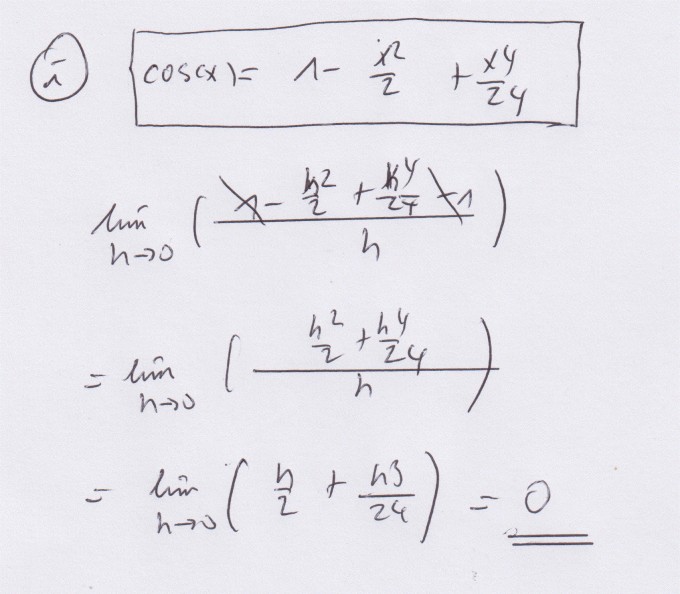 i cos(x) = 1 - x²/2 + x⁴/24
lim h→0 ( (1 - h²/2 + h⁴/24 - 1) / h )
= lim h→0 ( (h²/2 + h⁴/24) / h )
= lim h→0 ( h/2 + h3/24 ) = 0